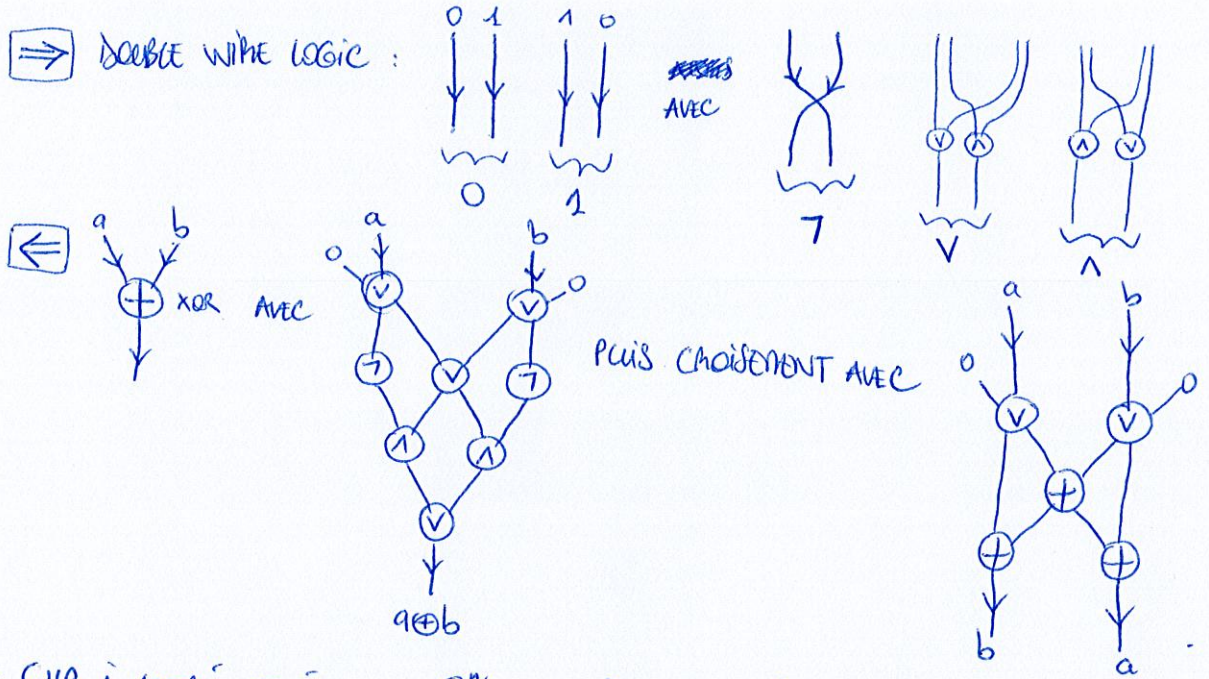 0 1 1 0
⇒ DOUBLE WIRE LOGIC :
AVEC
0 1 ¬ ∨ ∧
∨ ∧ ∧ ∨
⇐ a b
⊕ XOR AVEC
a b
0 ∨ ∨ 0
¬ ∨ ¬
∧ ∧
∨
a⊕b
PUIS CROISEMENT AVEC
a b
0 0
∨ ∨
⊕
⊕ ⊕
b a